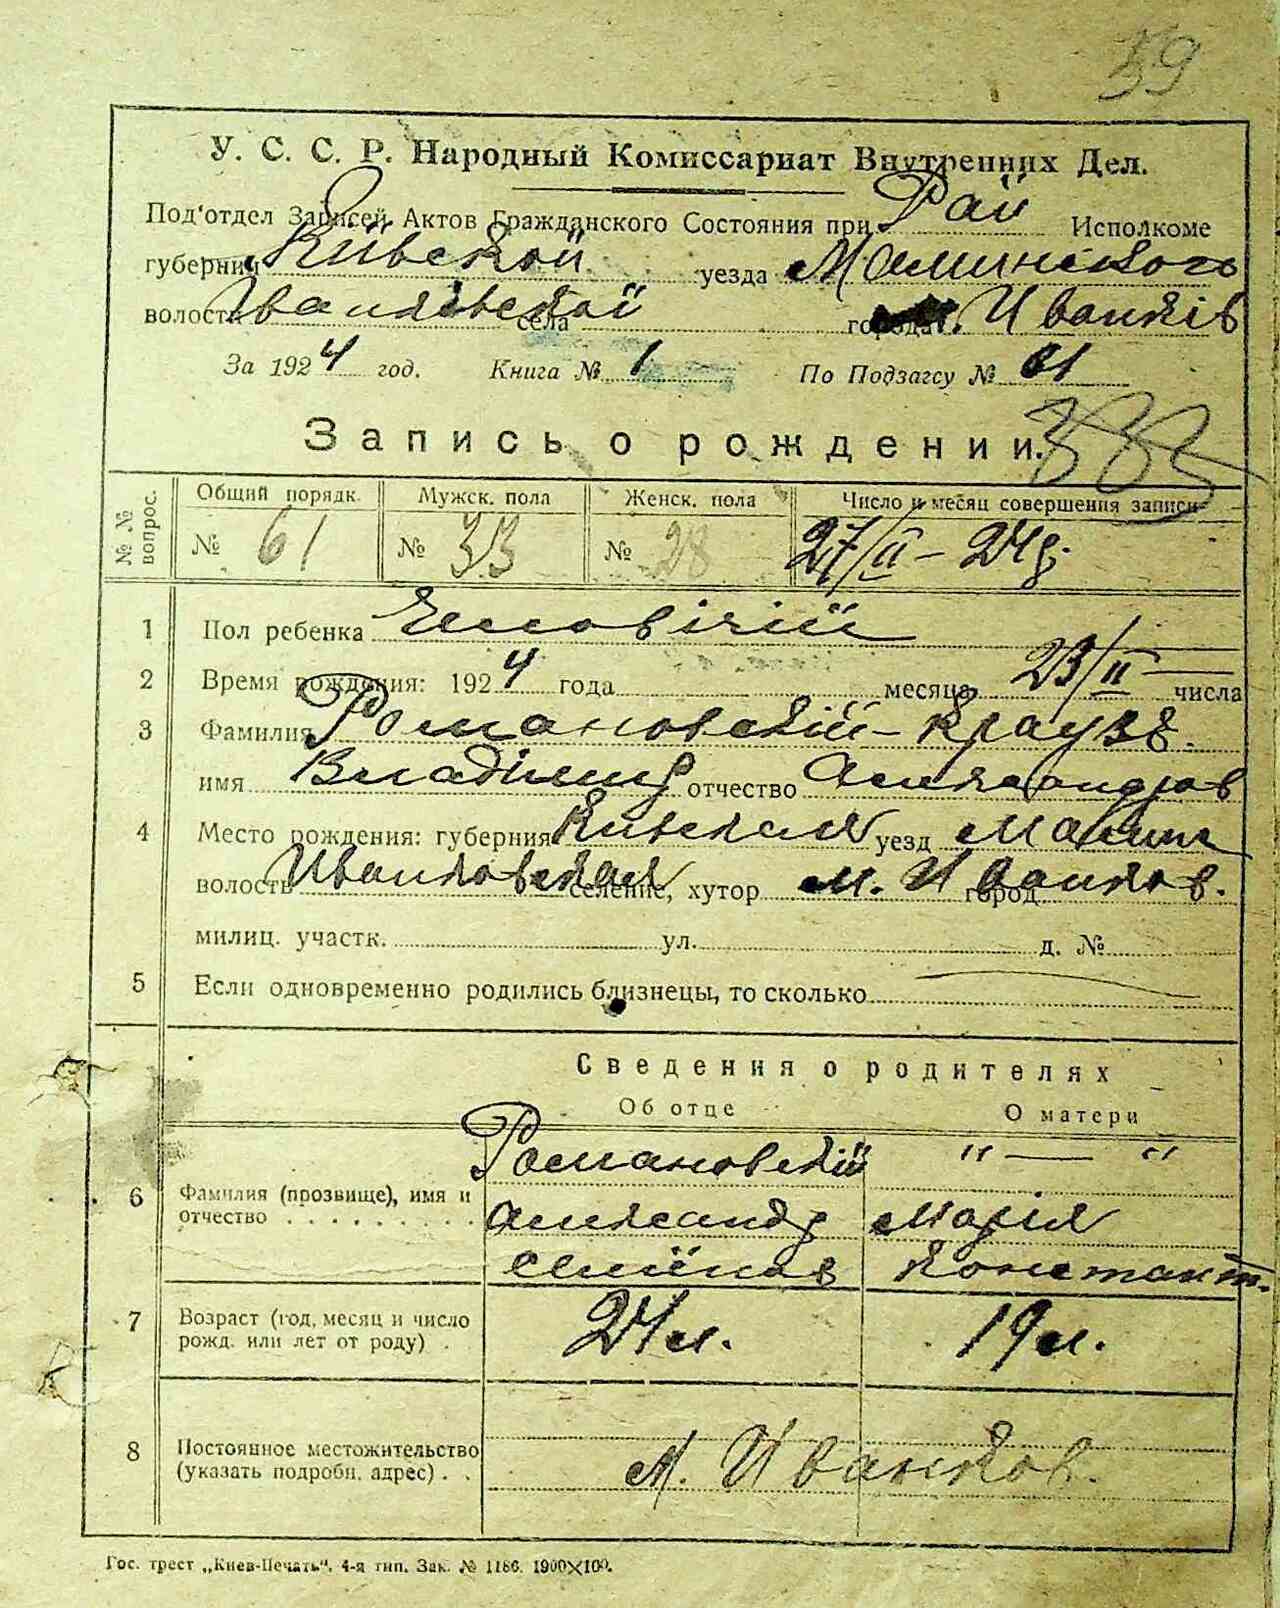 59
У. С. С. Р. Народный Комиссариат Внутренних Дел.
Под'отдел Записей Актов Гражданского Состояния при Рай Исполкоме
губернии Київской уезда Малинского
волости Іванківской села города м. Иванків
За 1924 год. Книга № 1 По Подзагсу № 61
Запись о рождении.
388
№ № вопрос. Общий порядк. Мужск. пола Женск. пола Число и месяц совершения записи
№ 61 № 33 № 28 27/II – 24 р.
1 Пол ребенка Чоловічий
2 Время рождения: 1924 года месяца 23/II числа
3 Фамилия Романовский-Краузе.
имя Владімир отчество Александров
4 Место рождения: губерния Киевская уезд Малин
волость Иванковская селение, хутор м. Иванков. город
милиц. участк. ул. д. №
5 Если одновременно родились близнецы, то сколько
Сведения о родителях
Об отце О матери
Романовский " — "
6 Фамилия (прозвище), имя и
отчество Александр Марія
Семёнов Констант.
7 Возраст (год, месяц и число
рожд. или лет от роду) 24 л. 19 л.
8 Постоянное местожительство
(указать подробн. адрес) м. Иванков.
Гос. трест „Киев-Печать“. 4-я тип. Зак. № 1186. 1900×100.